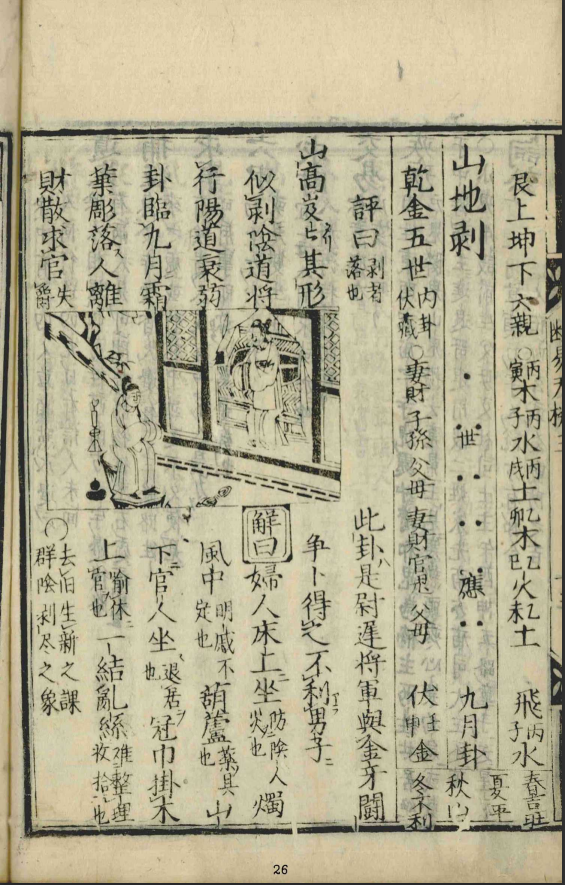 断易天機三
艮上坤下六親○丙寅木丙子水丙戌土乙卯木乙巳火乙未土 飛丙子水
春 旺
夏平
山地剥 世 應 九月卦
秋
乾金五世内卦伏藏○妻財子孫父母妻財官鬼父母 伏壬申金 冬不利
評曰剥者落也
山高岌〻其形
似剥陰道將
行陽道衰弱
卦臨九月霜
葉彫落人離
財散求官失爵
此卦是尉遲將軍與金牙鬪
争卜得之不利男子
解曰婦人床上坐防陰人災也燭
風中明滅不定也葫蘆藥具也山
下官人坐退居也冠巾掛木
上 休官也一結亂絲难整理收拾也
○去旧生新之課
群陰剥尽之象
26